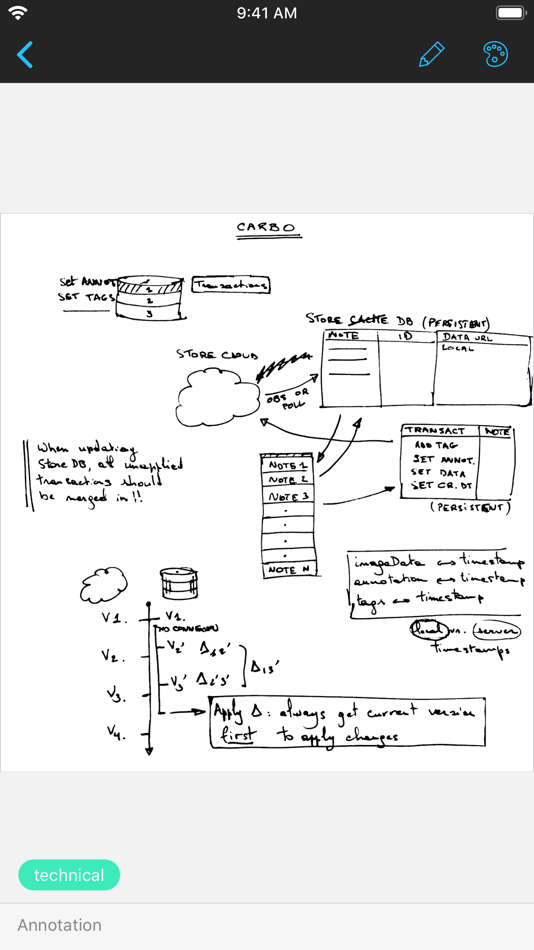 9:41 AM
CARBO
Set ANNOT
SET TAGS
1
2
3
Transactions
STORE CACHE DB (PERSISTENT)
NOTE ID DATA URL
LOCAL
STORE CLOUD
OBS OR
POLL
When updating
Store DB, all unapplied
transactions should
be merged in!!
TRANSACT NOTE
ADD TAG
SET ANNOT.
SET DATA
SET CR. DT
(PERSISTENT)
NOTE 1
NOTE 2
NOTE 3
.
.
.
.
NOTE N
imageData ↔ timestamp
annotation ↔ timestamp
tags ↔ timestamp
local vs. server
timestamps
V1. V1.
NO CONNECTION
V2. V2' Δ12'
V3. V3' Δ2'3' Δ13'
V4.
Apply Δ: always get current version
first to apply changes
technical
Annotation